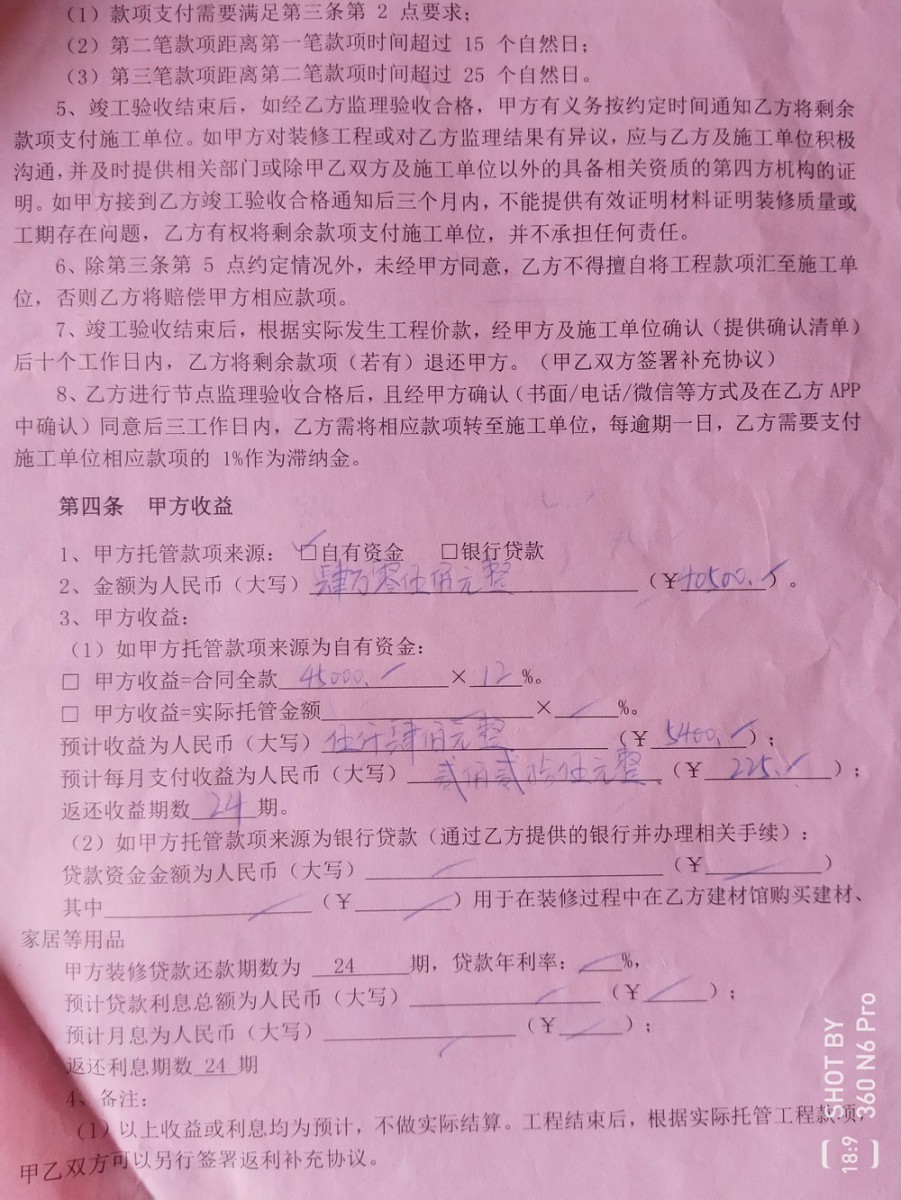 (1) 款项支付需要满足第三条第 2 点要求；
(2) 第二笔款项距离第一笔款项时间超过 15 个自然日；
(3) 第三笔款项距离第二笔款项时间超过 25 个自然日。
5、竣工验收结束后，如经乙方监理验收合格，甲方有义务按约定时间通知乙方将剩余
款项支付施工单位。如甲方对装修工程或对乙方监理结果有异议，应与乙方及施工单位积极
沟通，并及时提供相关部门或除甲乙双方及施工单位以外的具备相关资质的第四方机构的证
明。如甲方接到乙方竣工验收合格通知后三个月内，不能提供有效证明材料证明装修质量或
工期存在问题，乙方有权将剩余款项支付施工单位，并不承担任何责任。
6、除第三条第 5 点约定情况外，未经甲方同意，乙方不得擅自将工程款项汇至施工单
位，否则乙方将赔偿甲方相应款项。
7、竣工验收结束后，根据实际发生工程价款，经甲方及施工单位确认（提供确认清单）
后十个工作日内，乙方将剩余款项（若有）退还甲方。（甲乙双方签署补充协议）
8、乙方进行节点监理验收合格后，且经甲方确认（书面/电话/微信等方式及在乙方 APP
中确认）同意后三工作日内，乙方需将相应款项转至施工单位，每逾期一日，乙方需要支付
施工单位相应款项的 1%作为滞纳金。
第四条 甲方收益
1、甲方托管款项来源：☑自有资金 □银行贷款
2、金额为人民币（大写）肆万零伍佰元整（¥40500.）。
3、甲方收益：
（1）如甲方托管款项来源为自有资金：
□ 甲方收益=合同全款 45000. × 12 %。
□ 甲方收益=实际托管金额 × %。
预计收益为人民币（大写）伍仟肆佰元整（¥ 5400.）；
预计每月支付收益为人民币（大写）贰佰贰拾伍元整（¥ 225.）；
返还收益期数 24 期。
（2）如甲方托管款项来源为银行贷款（通过乙方提供的银行并办理相关手续）：
贷款资金金额为人民币（大写）（¥ ）
其中（¥ ）用于在装修过程中在乙方建材馆购买建材、
家居等用品
甲方装修贷款还款期数为 24 期，贷款年利率： %，
预计贷款利息总额为人民币（大写）（¥ ）；
预计月息为人民币（大写）（¥ ）；
返还利息期数 24 期
4、备注：
（1）以上收益或利息均为预计，不做实际结算。工程结束后，根据实际托管工程款项，
甲乙双方可以另行签署返利补充协议。
SHOT BY
360 N6 Pro
18:9